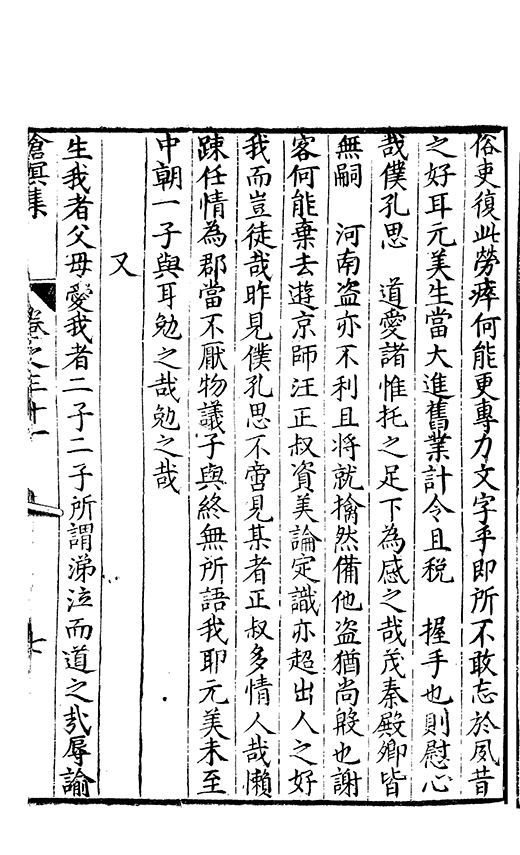 俗吏復此勞瘁何能更專力文字乎即所不敢忘於夙昔
之好耳元美生當大進舊業計令且稅　握手也則慰心
哉僕孔思　道愛諸惟托之足下為感之哉茂秦殿卿皆
無嗣　河南盗亦不利且将就擒然備他盗猶尚殷也謝
客何能棄去遊京師汪正叔資美論定識亦超出人之好
我而豈徒哉昨見僕孔思不啻見某者正叔多情人哉懶
踈任情為郡當不厭物議子與終無所語我耶元美未至
中朝一子與耳勉之哉勉之哉
又
生我者父母愛我者二子二子所謂涕泣而道之㢤辱諭
滄溟集
卷之三十一
七